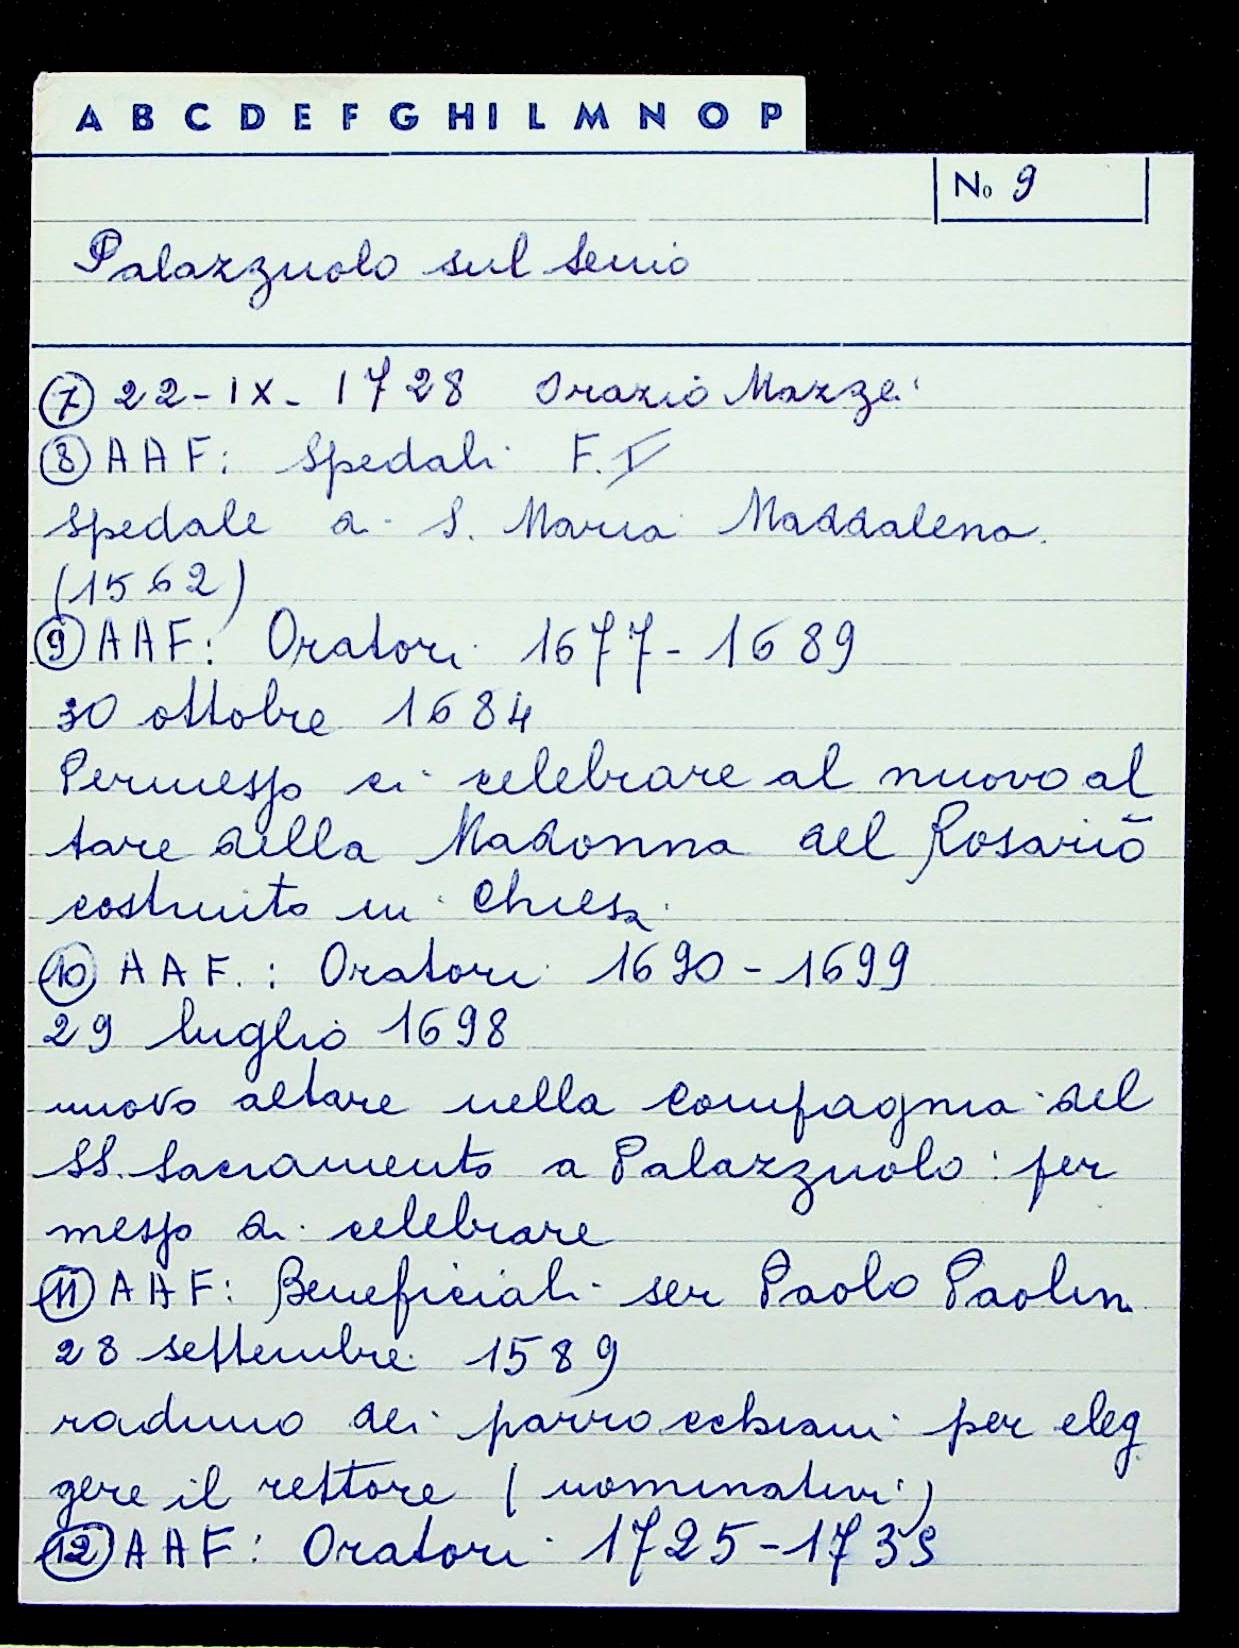 A B C D E F G H I L M N O P
No 9
Palazzuolo sul Senio
7 22-IX-1728 Orazio Mazzei
8 AAF: Spedali F. I
Spedale di S. Maria Maddalena.
(1562)
9 AAF: Oratori 1677-1689
30 ottobre 1684
Permesso di celebrare al nuovo al
tare della Madonna del Rosario
costruito in Chiesa
10 AAF.: Oratori 1690-1699
29 luglio 1698
nuovo altare nella Compagnia del
SS. Sacramento a Palazzuolo: per
messo di celebrare
11 AAF: Beneficiali ser Paolo Paolini
28 settembre 1589
raduno dei parrocchiani per eleg
gere il rettore (nominativi)
12 AAF: Oratori 1725-1739